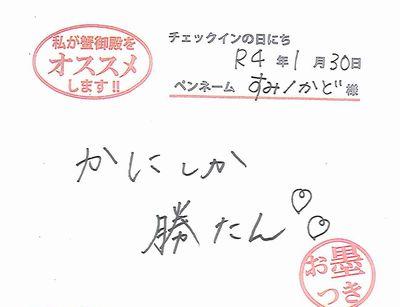 私が蟹御殿を
オススメ
します!!
チェックインの日にち
R4年1月30日
ペンネーム すみノかど様
かにしか
勝たん
お墨
つき